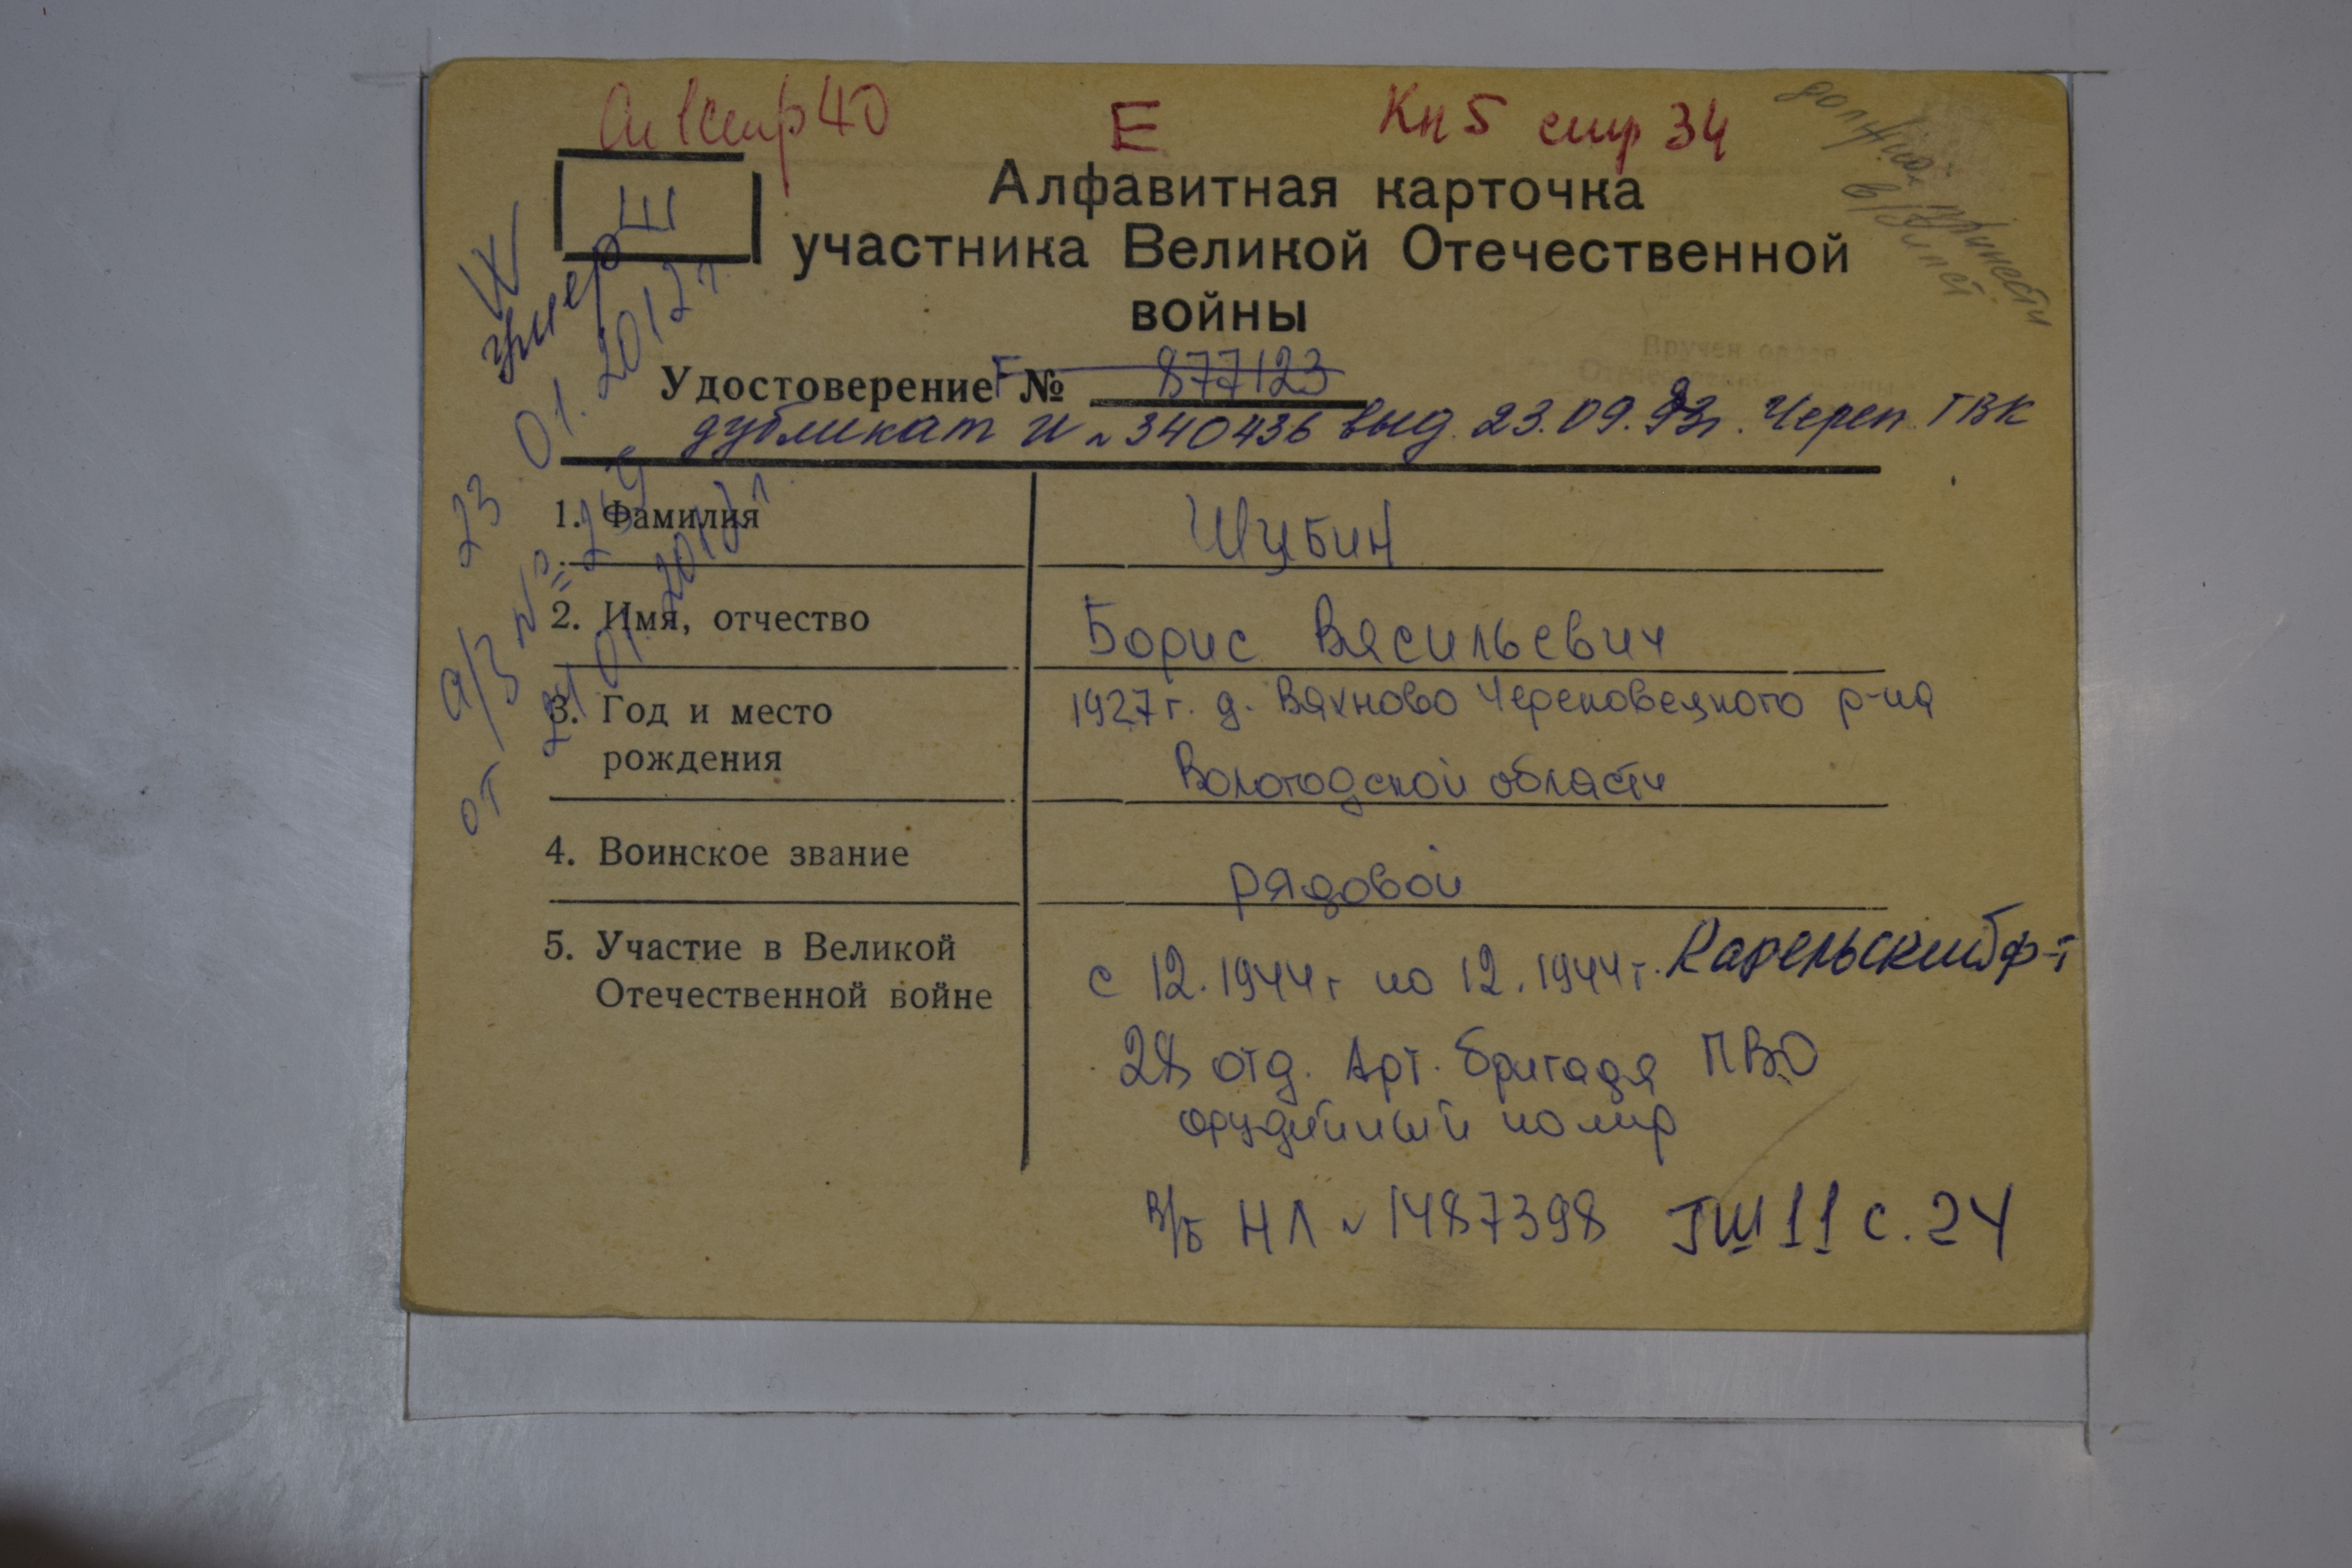 Ал 1 стр 40 Е Кн 5 стр 34
должна принести
в/билет
Ш
Алфавитная карточка
участника Великой Отечественной
войны
Удостоверение Г № 877123
дубликат И № 340436 выд. 23.09.93г. Череп. ГВК
умер
23.01.2012г.
а/з № 259
от 24.01.2012г.
1. Фамилия Шубин
2. Имя, отчество Борис Васильевич
3. Год и место 1927г. д. Вахново Череповецкого р-на
рождения Вологодской области
4. Воинское звание рядовой
5. Участие в Великой с 12.1944г по 12.1944г. Карельский ф-т
Отечественной войне
28 отд. Арт. бригада ПВО
орудийный номер
в/б НЛ № 1487398 ГШ 11 с. 24